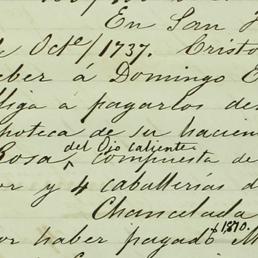 En San
Octe/1737. Cristo
eber á Domingo E
liga a pagarlos de
poteca de su hacien
Rosa ^ del Ojo caliente compuesta de
or y 4 caballerías d
Chancelada
x 1870.
or haber pagado M